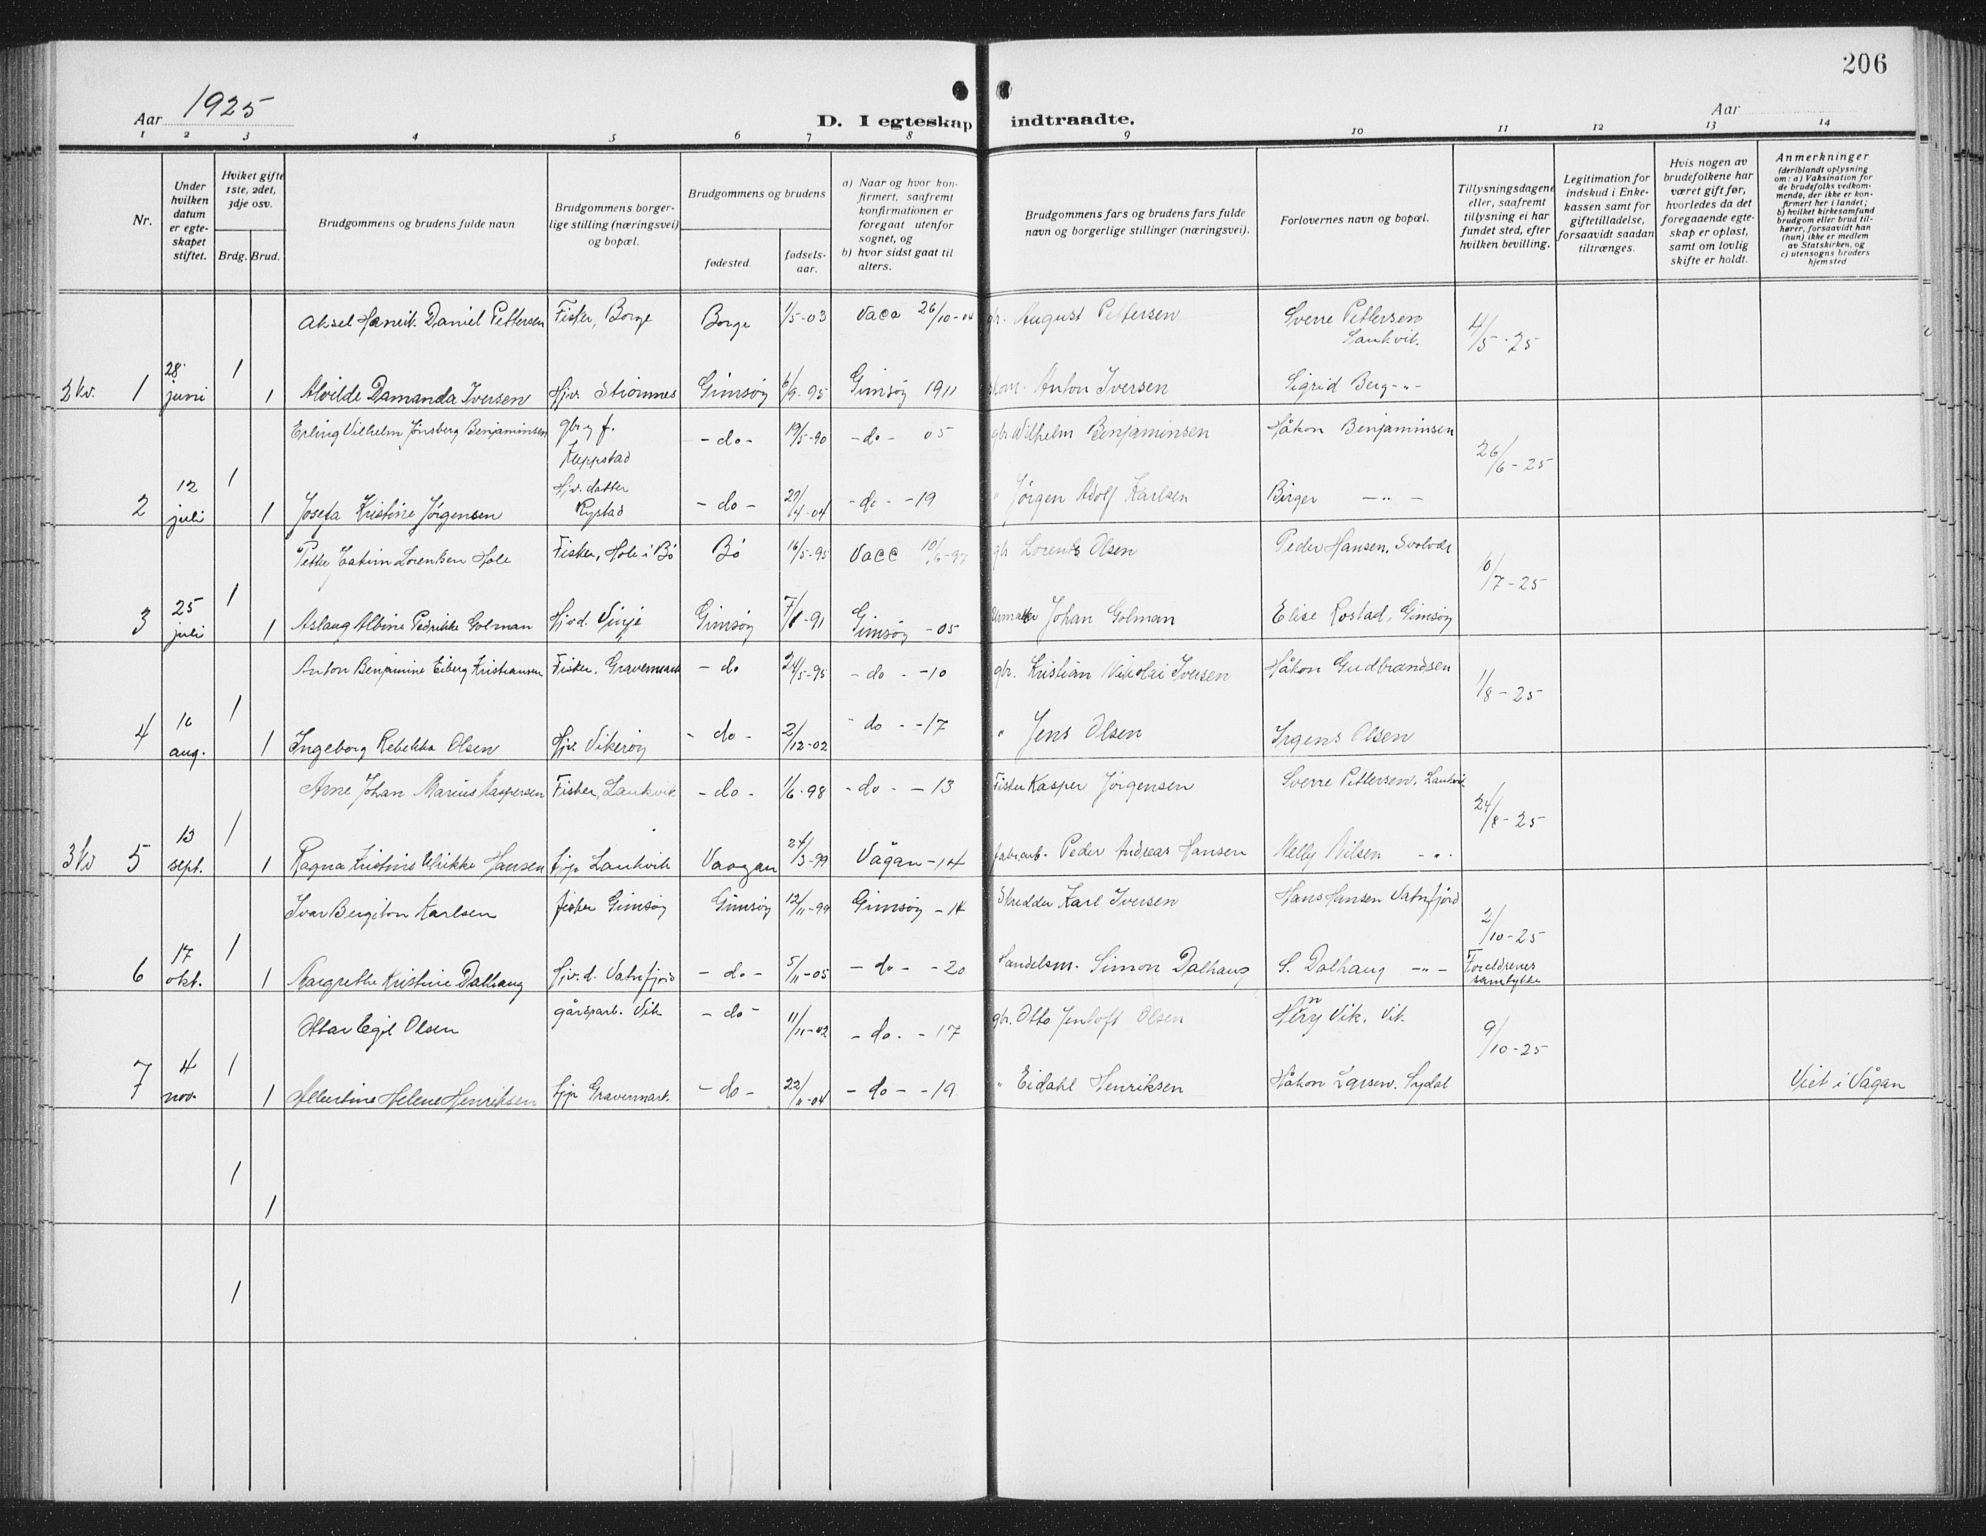 206
Aar 1925
Aar
D. I egteskap indtraadte.
1 2 3 4 5 6 7 8 9 10 11 12 13 14
Nr.
Under hvilken datum er egteskapet stiftet.
Hvilket gifte 1ste, 2det, 3dje osv.
Brdg. Brud.
Brudgommens og brudens fulde navn
Brudgommens borgerlige stilling (næringsvei) og bopæl.
Brudgommens og brudens
fødested.
fødselsaar.
a) Naar og hvor konfirmert, saafremt konfirmationen er foregaat utenfor sognet, og
b) hvor sidst gaat til alters.
Brudgommens fars og brudens fars fulde navn og borgerlige stillinger (næringsvei).
Forlovernes navn og bopæl.
Tillysningsdagene eller, saafremt tillysning ei har fundet sted, efter hvilken bevilling.
Legitimation for indskud i Enkekassen samt for giftetilladelse, forsaavidt saadan tiltrænges.
Hvis nogen av brudefolkene har været gift før, hvorledes da det foregaaende egteskap er opløst, samt om lovlig skifte er holdt.
Anmerkninger (deriblandt oplysning om: a) Vaksination for de brudefolks vedkommende, der ikke er konfirmert her i landet; b) hvilket kirkesamfund brudgom eller brud tilhører, forsaavidt han (hun) ikke er medlem av Statskirken, og c) utensogns bruders hjemsted
Aksel Henrik Daniel Pettersen Fisker, Borge Borge 1/5-03 Vacc 26/10-04 gbr. August Pettersen Sverre Pettersen Laukvik. 4/5-25
2 kv. 1 28. juni 1 1 Alvilde Damanda Iversen Hjv. Strømnes Gimsøy 6/9-95 Gimsøy 1911 Anton Iversen Sigrid Berg -"-
Erling Vilhelm Jönsberg Benjaminsen gbr og f. Kleppstad -do- 19/5-90 -do- 05 gbr Vilhelm Benjaminsen Håkon Benjaminsen 26/6-25
2 12 juli 1 1 Josefa Kristine Jørgensen Hjv. datter Rystad -do- 29/4-04 -do- -19 " Jørgen Adolf Karlsen Birger -"-
Petter Joakim Lorentsen Hole Fisker, Hole i Bø Bø 16/5-95 Vacc 10/6-97 gbr Lorents Olsen Peder Hansen, Svolvær 6/7-25
3 25 juli 1 1 Aslaug Albine Pedrikke Golman Hjvd. Vinje Gimsøy 7/8-91 Gimsøy -05 Johan Golman Elise Rostad, Gimsøy
Anton Benjamine Eiberg Kristiansen Fisker, Gravermark -do 24/5-95 -do- -10 gbr. Kristian Nikolai Iversen Håkon Gudbrandsen 1/8-25
4 16 aug. 1 1 Ingeborg Rebekka Olsen Hjv. Vikerøy -do- 2/12-02 -do- -17 " Jens Olsen Irgens Olsen
Arne Johan Marius Kaspersen Fisker, Laukvik -do- 1/6-98 -do- -13 Fisker Kasper Jørgensen Sverre Pettersen. Laukvik 24/8-25
3 kv 5 13 sept. 1 1 Ragna Kristine Ulrikke Hansen tjp Laukvik Vaagan 24/3-99 Vågan -14 fabrarb. Peder Andreas Hansen Nelly Nilsen -"-
Ivar Bergiton Karlsen fisker Gimsøy Gimsøy 12/11-99 Gimsøy -14 Skredder Karl Iversen Hans Hansen Vatnfjord 2/10-25
6 17 okt. 1 1 Margrethe Kristine Dalhaug Hjv. d. Vatnfjord -do- 5/11-05 -do- -20 Handelsm. Simon Dalhaug S. Dalhaug -"- Foreldrenes samtykke
Ottar Egil Olsen gårdsarb. Vik -do- 11/11-02 -do- -17 gbr. Otto Jentoft Olsen Henry Vik. Vik. 9/10-25
7 4 nov. 1 1 Albertine Helene Henriksen tjp Gravermark. -do- 22/11-04 -do- -19 " Eidahl Henriksen Håkon Larsen. Sydal Viet i Vågan
1
1
1